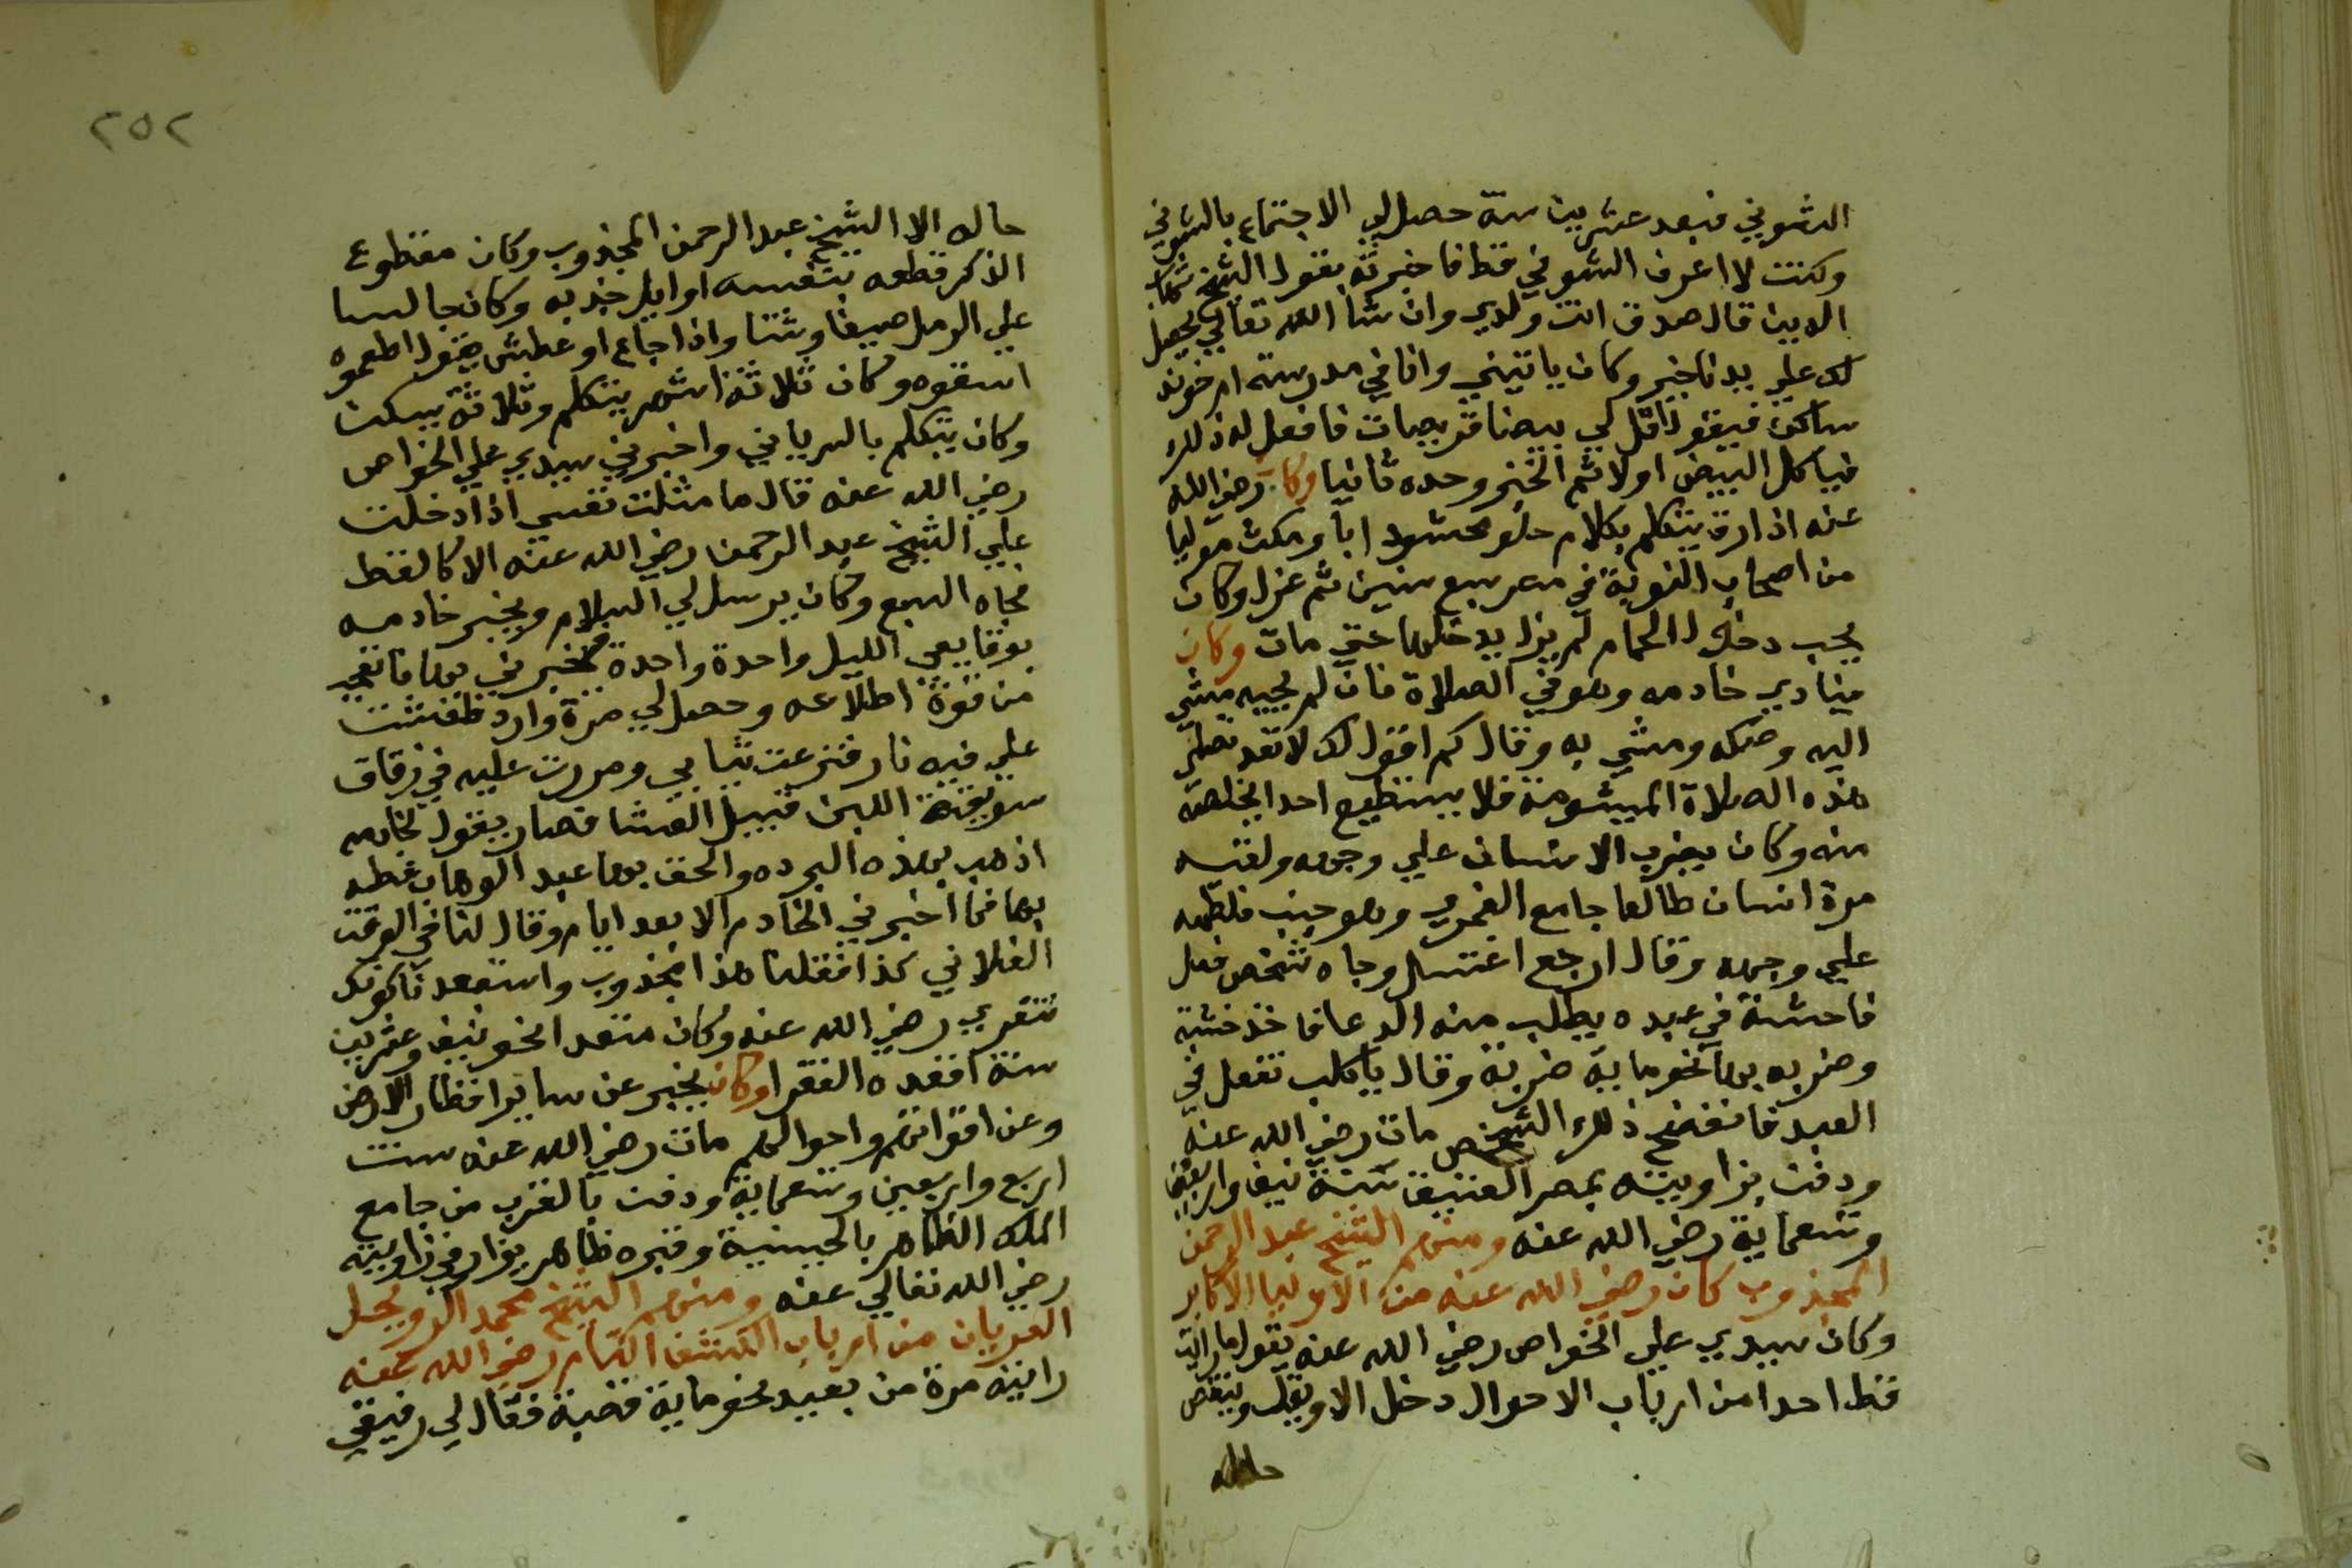 الشوني فبعد عشرين سنة حصل لي الاجتماع بالشوني
وكنت لا اعرف الشوني قط فاخبرته بقول الشيخ شهاب
الدين قال صدق انت ولدي وان شا الله تعالي يحصل
لك علي يدنا خير وكان ياتيني وانا في مدرسة ام خوند
ساكن فيقول اقل لي بيضا قريصات فافعل له ذلك
فياكل البيض اولا ثم الخبز وحده ثانيا وكان رضي الله
عنه اذا راق يتكلم بكلام حلو محشو ادبا ومكث موليا
من اصحاب النوبة في مصر سبع سنين ثم عزل وكان
يحب دخول الحمام لم يزل يدخلها حتي مات وكان
ينادي خادمه وهو في الصلاة فان لم يجيبه مشي
اليه وصكه ومشي به وقال كم اقول لك لا تعد تصلي
هذه الصلاة الميشومة فلا يستطيع احد ايخلصه
منه وكان يضرب الانسان علي وجهه ولقيه
مرة انسان طالعا جامع الغمري وهو جنب فلطمه
علي وجهه وقال ارجع اغتسل وجاه شخص فعل
فاحشة في عبده يطلب منه الدعا فاخذ خشبة
وضربه بها نحو ماية ضربة وقال ياكلب تفعل في
العبد فانفضح ذلك الشخص مات رضي الله عنه
ودفن بزاويته بمصر العتيقة سنة نيف واربعين
وتسعماية رضي الله عنه ومنهم الشيخ عبد الرحمن
المجذوب كان رضي الله عنه من الاوليا الاكابر
وكان سيدي علي الخواص رضي الله عنه يقول ما رايت
قط احدا من ارباب الاحوال دخل الا وينقص
حاله
٢٥٢
حاله الا الشيخ عبد الرحمن المجذوب وكان مقطوع
الذكر قطعه بنفسه اوايل جذبه وكان جالسا
علي الرمل صيفا وشتا واذا جاع او عطش يقول اطعموه
اسقوه وكان ثلاثة اشهر يتكلم وثلاثة يسكت
وكان يتكلم بالسرياني واخبرني سيدي علي الخواص
رضي الله عنه قال ما مثلت نفسي اذا دخلت
علي الشيخ عبد الرحمن رضي الله عنه الا كالقط
تجاه السبع وكان يرسل لي السلام ويخبر خادمه
بوقايعي الليل واحدة واحدة فيخبرني بها فاتعجب
من قوة اطلاعه وحصل لي مرة وارد ظفشت
علي فيه نار فنزعت ثيابي ومررت عليه في زقاق
سويقة اللبن قبيل العشا فصار يقول لخادمه
اذهب بهذه البرده والحق بها عبد الوهاب غطيه
بها فما اخبرني الخادم الا بعد ايام وقال لنا في الوقت
الفلاني كذا فقلنا هذا مجذوب واستبعدنا كونك
تتعري رضي الله عنه وكان مقعدا نحو نيف وعشرين
سنة اقعده الفقرا وكان يخبر عن ساير اقطار الارض
وعن اقواتهم واحوالهم مات رضي الله عنه سنت
اربع واربعين وتسعماية ودفن بالقرب من جامع
الملك الظاهر بالحسينية وقبره ظاهر يزار في زاويته
رضي الله تعالي عنه ومنهم الشيخ محمد الرويجل
العريان من ارباب الكشف التام رضي الله عنه
رايته مرة من بعيد نحو ماية قصبة فقال لي رفيقي